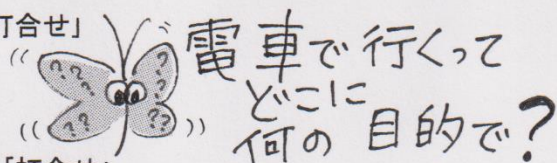 打合せ」
電車で行くって
どこに
何の目的で?
? ? ? ? ? ? ? ?
「打合せ」